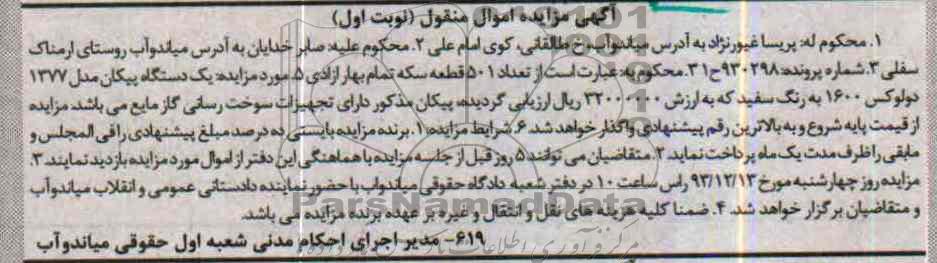 آگهی مزایده اموال منقول (نوبت اول)
۱. محکوم له: پریسا غیورنژاد به آدرس میاندوآب خ طالقانی، کوی امام علی ۲. محکوم علیه: صابر خدایان به آدرس میاندوآب روستای ارمناک
سفلی ۳. شماره پرونده: ۹۳۰۲۹۸ح۳۱. محکوم به: عبارت است از تعداد ۵۰۱ قطعه سکه تمام بهار ازادی ۵. مورد مزایده: یک دستگاه پیکان مدل ۱۳۷۷
دولوکس ۱۶۰۰ به رنگ سفید که به ارزش ۳۲۰۰۰۰۰۰ ریال ارزیابی گردیده، پیکان مذکور دارای تجهیزات سوخت رسانی گاز مایع می باشد. مزایده
از قیمت پایه شروع و به بالاترین رقم پیشنهادی واگذار خواهد شد. ۶. شرایط مزایده: ۱. برنده مزایده بایستی ده درصد مبلغ پیشنهادی را فی المجلس و
مابقی را ظرف مدت یک ماه پرداخت نماید. ۲. متقاضیان می توانند ۵ روز قبل از جلسه مزایده با هماهنگی این دفتر از اموال مورد مزایده بازدید نمایند. ۳.
مزایده روز چهارشنبه مورخ ۹۳/۱۲/۱۳ راس ساعت ۱۰ در دفتر شعبه دادگاه حقوقی میاندواب با حضور نماینده دادستانی عمومی و انقلاب میاندوآب
و متقاضیان برگزار خواهد شد. ۴. ضمنا کلیه هزینه های نقل و انتقال و غیره بر عهده برنده مزایده می باشد.
ParsNamadData
۶۱۹- مدیر اجرای احکام مدنی شعبه اول حقوقی میاندوآب